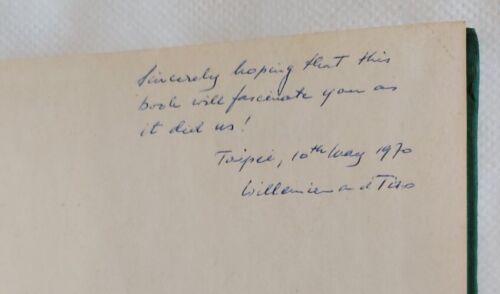 Sincerely hoping that this
book will fascinate you as
it did us!
Taipei, 10th May 1970
Willemien and